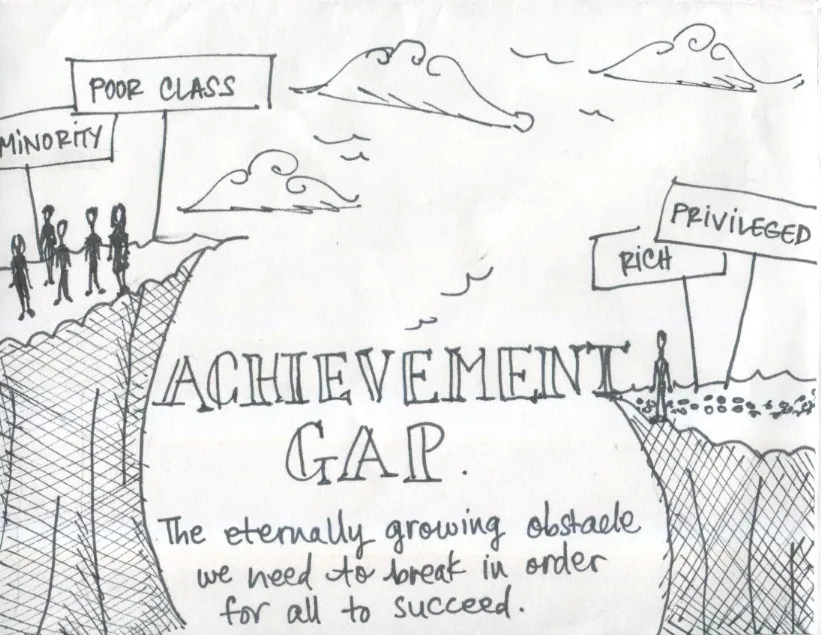 POOR CLASS
MINORITY
PRIVILEGED
RICH
ACHIEVEMENT
GAP.
The eternally growing obstacle
we need to break in order
for all to succeed.